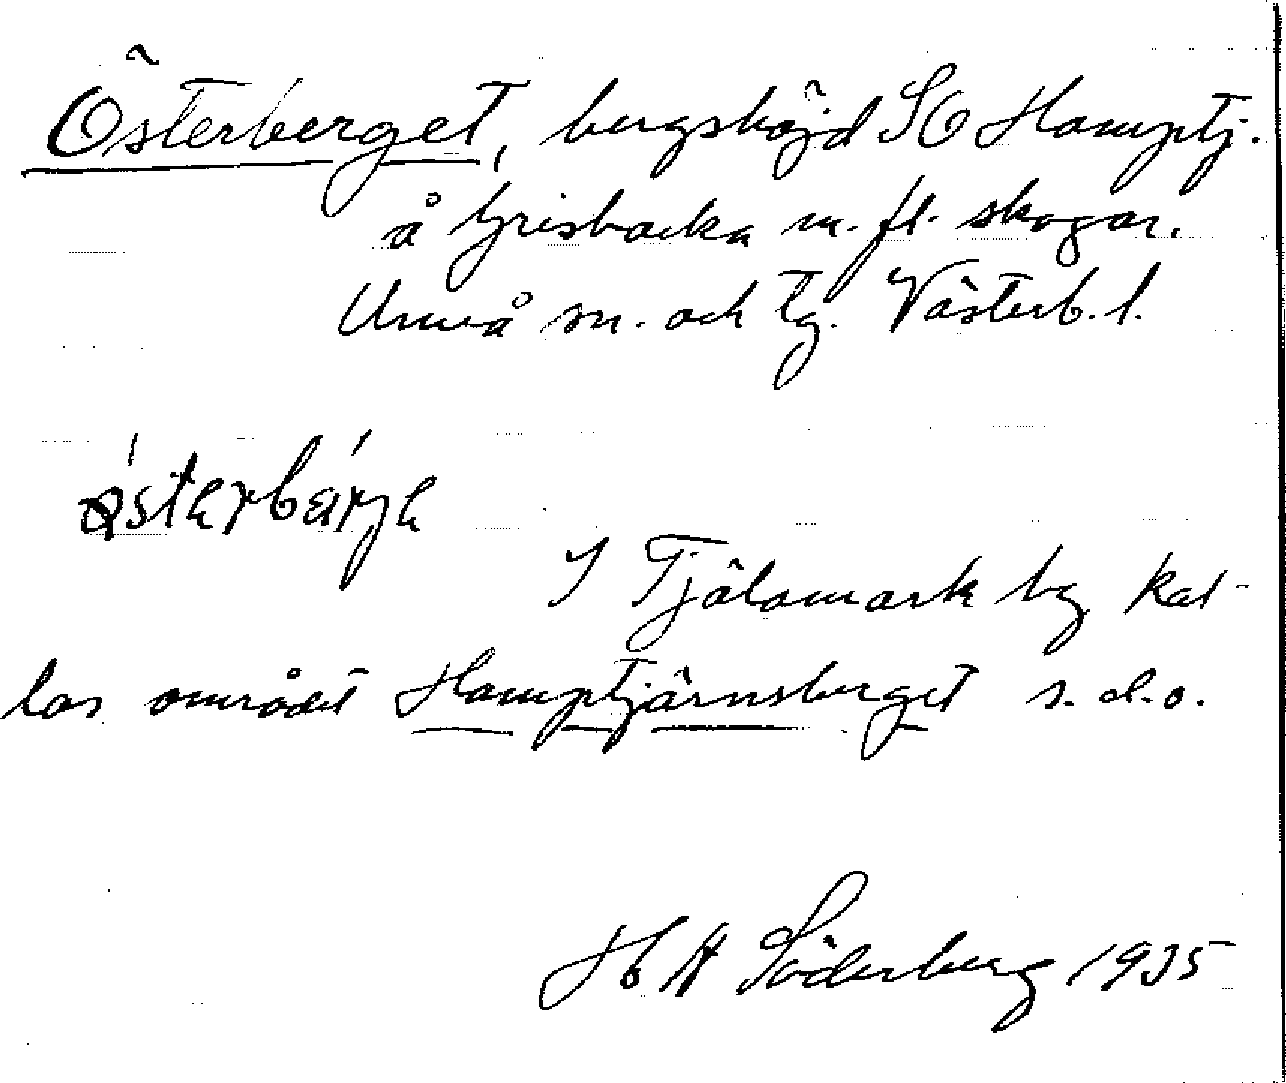 Österberget, bergshöjd SO Hamptj.
å Grisbacka m. fl. skogar.
Umeå sn. och tg. Västerb. l.
östǝrbárjǝ
I Tjälamark by kal-
las området Hamptjärnsberget s. d. o.
H A Söderberg 1935